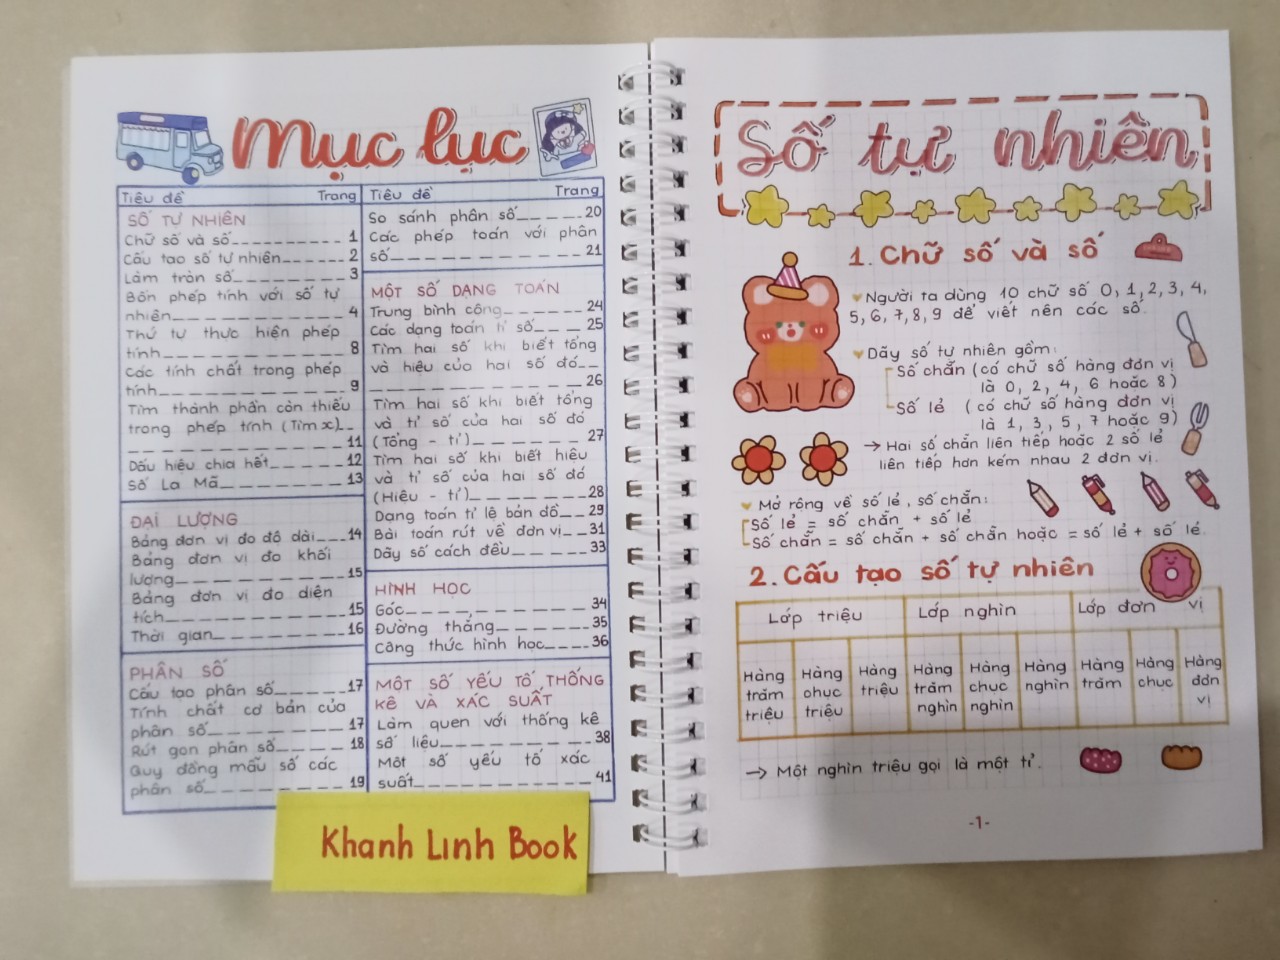 Mục lục
Tiêu đề Trang
SỐ TỰ NHIÊN
Chữ số và số__________ 1
Cấu tạo số tự nhiên______ 2
Làm tròn số__________ 3
Bốn phép tính với số tự
nhiên______________ 4
Thứ tự thực hiện phép
tính______________ 8
Các tính chất trong phép
tính______________ 9
Tìm thành phần còn thiếu
trong phép tính (Tìm x)__
______________ 11
Dấu hiệu chia hết______ 12
Số La Mã__________ 13
ĐẠI LƯỢNG
Bảng đơn vị đo độ dài___14
Bảng đơn vị đo khối
lượng______________15
Bảng đơn vị đo diện
tích______________15
Thời gian__________ 16
PHÂN SỐ
Cấu tạo phân số_____17
Tính chất cơ bản của
phân số__________17
Rút gọn phân số_____18
Quy đồng mẫu số các
phân số__________19
Tiêu đề Trang
So sánh phân số_____20
Các phép toán với phân
số______________21
MỘT SỐ DẠNG TOÁN
Trung bình cộng_____24
Các dạng toán tỉ số____25
Tìm hai số khi biết tổng
và hiệu của hai số đó__
______________26
Tìm hai số khi biết tổng
và tỉ số của hai số đó
(Tổng - tỉ)__________27
Tìm hai số khi biết hiệu
và tỉ số của hai số đó
(Hiệu - tỉ)__________28
Dạng toán tỉ lệ bản đồ__29
Bài toán rút về đơn vị__31
Dãy số cách đều_____33
HÌNH HỌC
Góc______________34
Đường thẳng________35
Công thức hình học____36
MỘT SỐ YẾU TỐ THỐNG
KÊ VÀ XÁC SUẤT
Làm quen với thống kê
số liệu____________38
Một số yếu tố xác
suất______________41
Khanh Linh Book
Số tự nhiên
1. Chữ số và số
Người ta dùng 10 chữ số 0, 1, 2, 3, 4,
5, 6, 7, 8, 9 để viết nên các số.
Dãy số tự nhiên gồm:
Số chẵn (có chữ số hàng đơn vị
là 0, 2, 4, 6 hoặc 8)
Số lẻ (có chữ số hàng đơn vị
là 1, 3, 5, 7 hoặc 9)
→ Hai số chẵn liên tiếp hoặc 2 số lẻ
liên tiếp hơn kém nhau 2 đơn vị.
Mở rộng về số lẻ, số chẵn:
Số lẻ = số chẵn + số lẻ
Số chẵn = số chẵn + số chẵn hoặc = số lẻ + số lẻ.
2. Cấu tạo số tự nhiên
Lớp triệu Lớp nghìn Lớp đơn vị
Hàng trăm triệu Hàng chục triệu Hàng triệu Hàng trăm nghìn Hàng chục nghìn Hàng nghìn Hàng trăm Hàng chục Hàng đơn vị
→ Một nghìn triệu gọi là một tỉ.
-1-